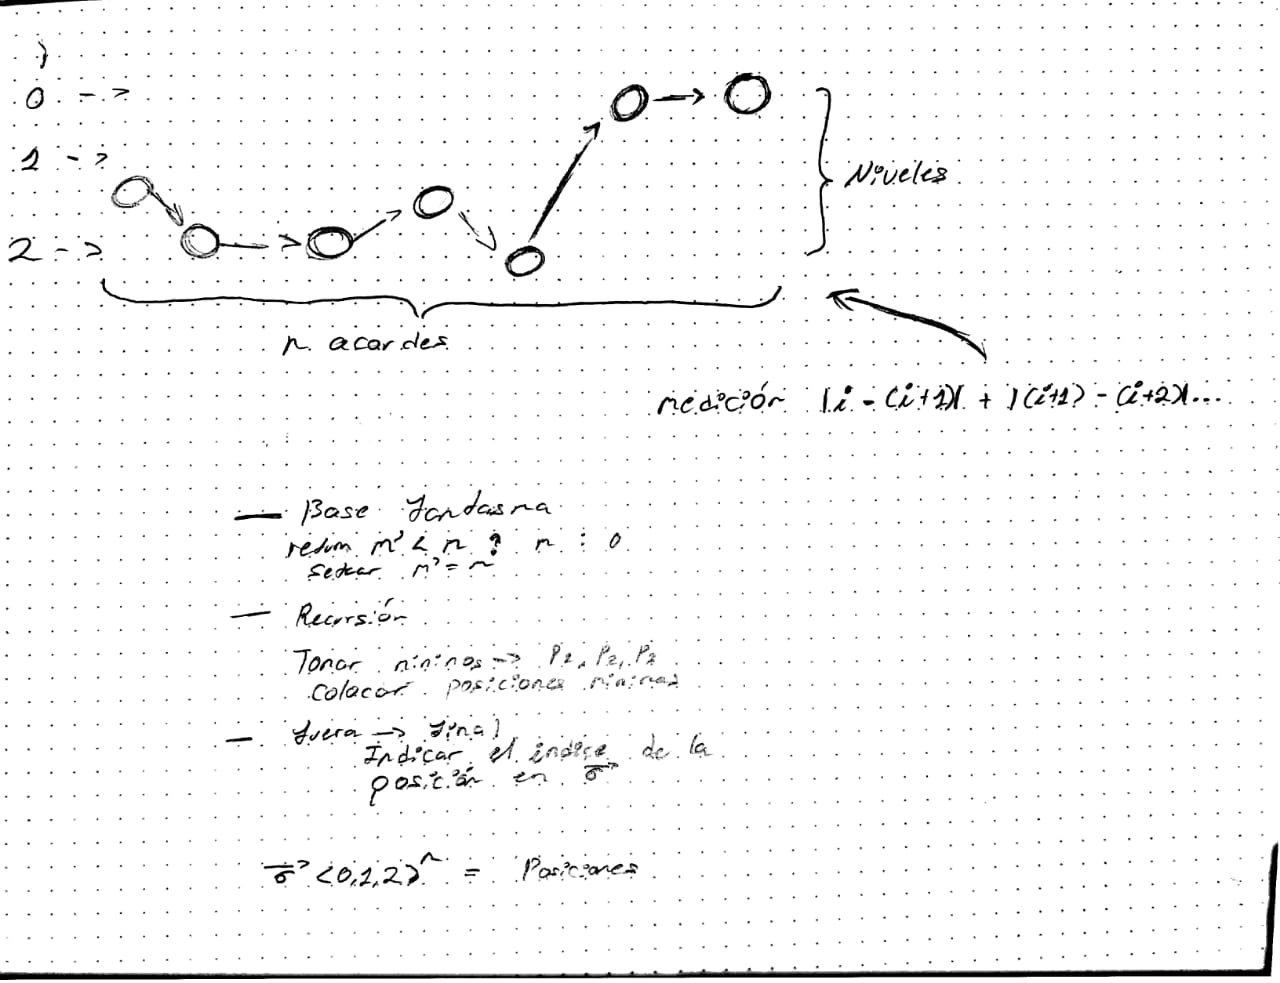 0 -->
1 ->
2 -->
Niveles
n acordes
medición |i - (i+1)| + |(i+1) - (i+2)|...
— Base fantasma
return m' < n ? n : 0
setear m' = n
— Recursión
Tomar mínimos -> P₁, P₂, P₃
colocar posiciones mínimas
— fuera -> final
Indicar el índice de la
posición en σ⃗
σ⃗ <0,1,2>^n = Posiciones